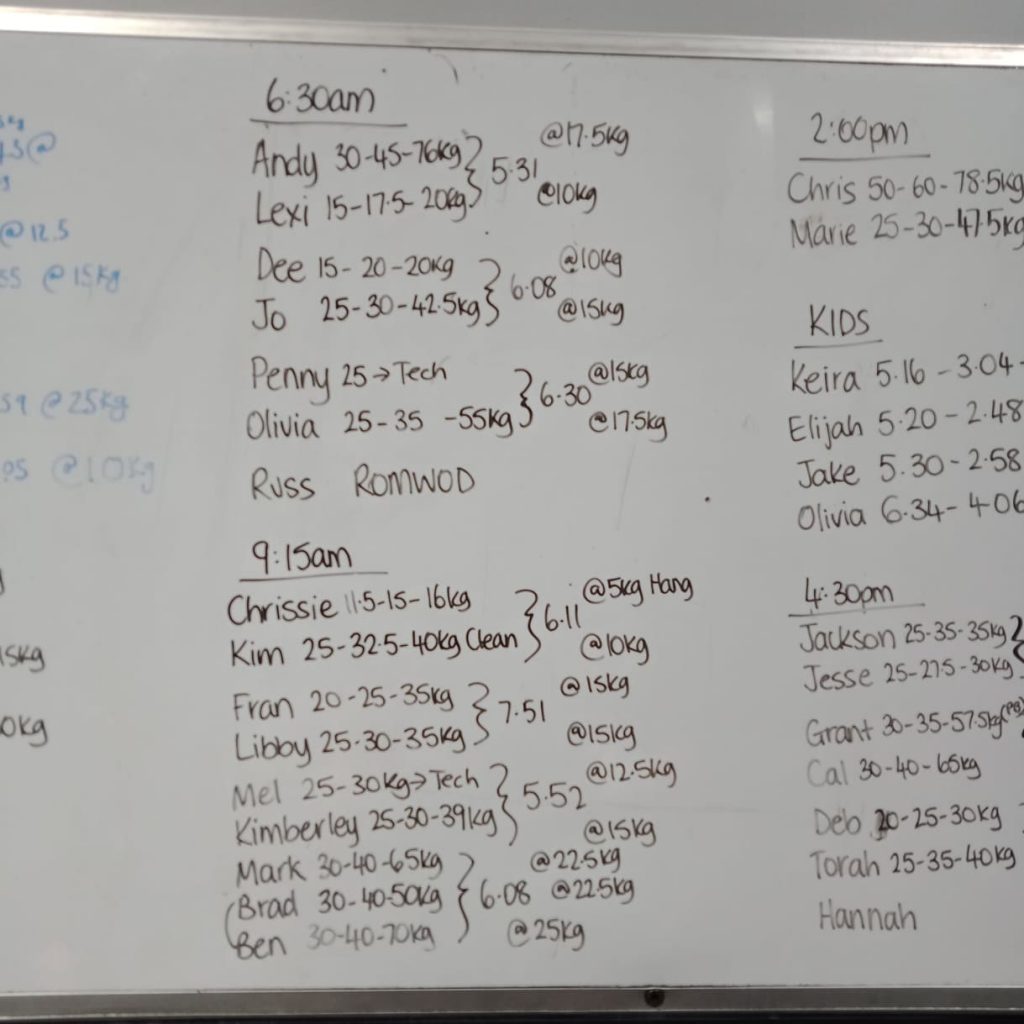 @12.5
@15kg
@25kg
@10kg
15kg
0kg
6:30am
Andy 30-45-76kg } 5.31 @17.5kg
Lexi 15-17.5-20kg @10kg
Dee 15-20-20kg } 6.08 @10kg
Jo 25-30-42.5kg @15kg
Penny 25→Tech } 6.30 @15kg
Olivia 25-35-55kg @17.5kg
Russ ROMWOD
9:15am
Chrissie 11.5-15-16kg } 6.11 @5kg Hang
Kim 25-32.5-40kg Clean @10kg
Fran 20-25-35kg } 7.51 @15kg
Libby 25-30-35kg @15kg
Mel 25-30kg→Tech } 5.52 @12.5kg
Kimberley 25-30-39kg @15kg
Mark 30-40-65kg @22.5kg
Brad 30-40-50kg } 6.08 @22.5kg
Ben 30-40-70kg @25kg
2:00pm
Chris 50-60-78.5kg
Marie 25-30-47.5kg
KIDS
Keira 5.16-3.04-
Elijah 5.20-2.48
Jake 5.30-2.58
Olivia 6.34-4.06
4:30pm
Jackson 25-35-35kg
Jesse 25-27.5-30kg
Grant 30-35-57.5kg (PB)
Cal 30-40-65kg
Deb 20-25-30kg
Torah 25-35-40kg
Hannah